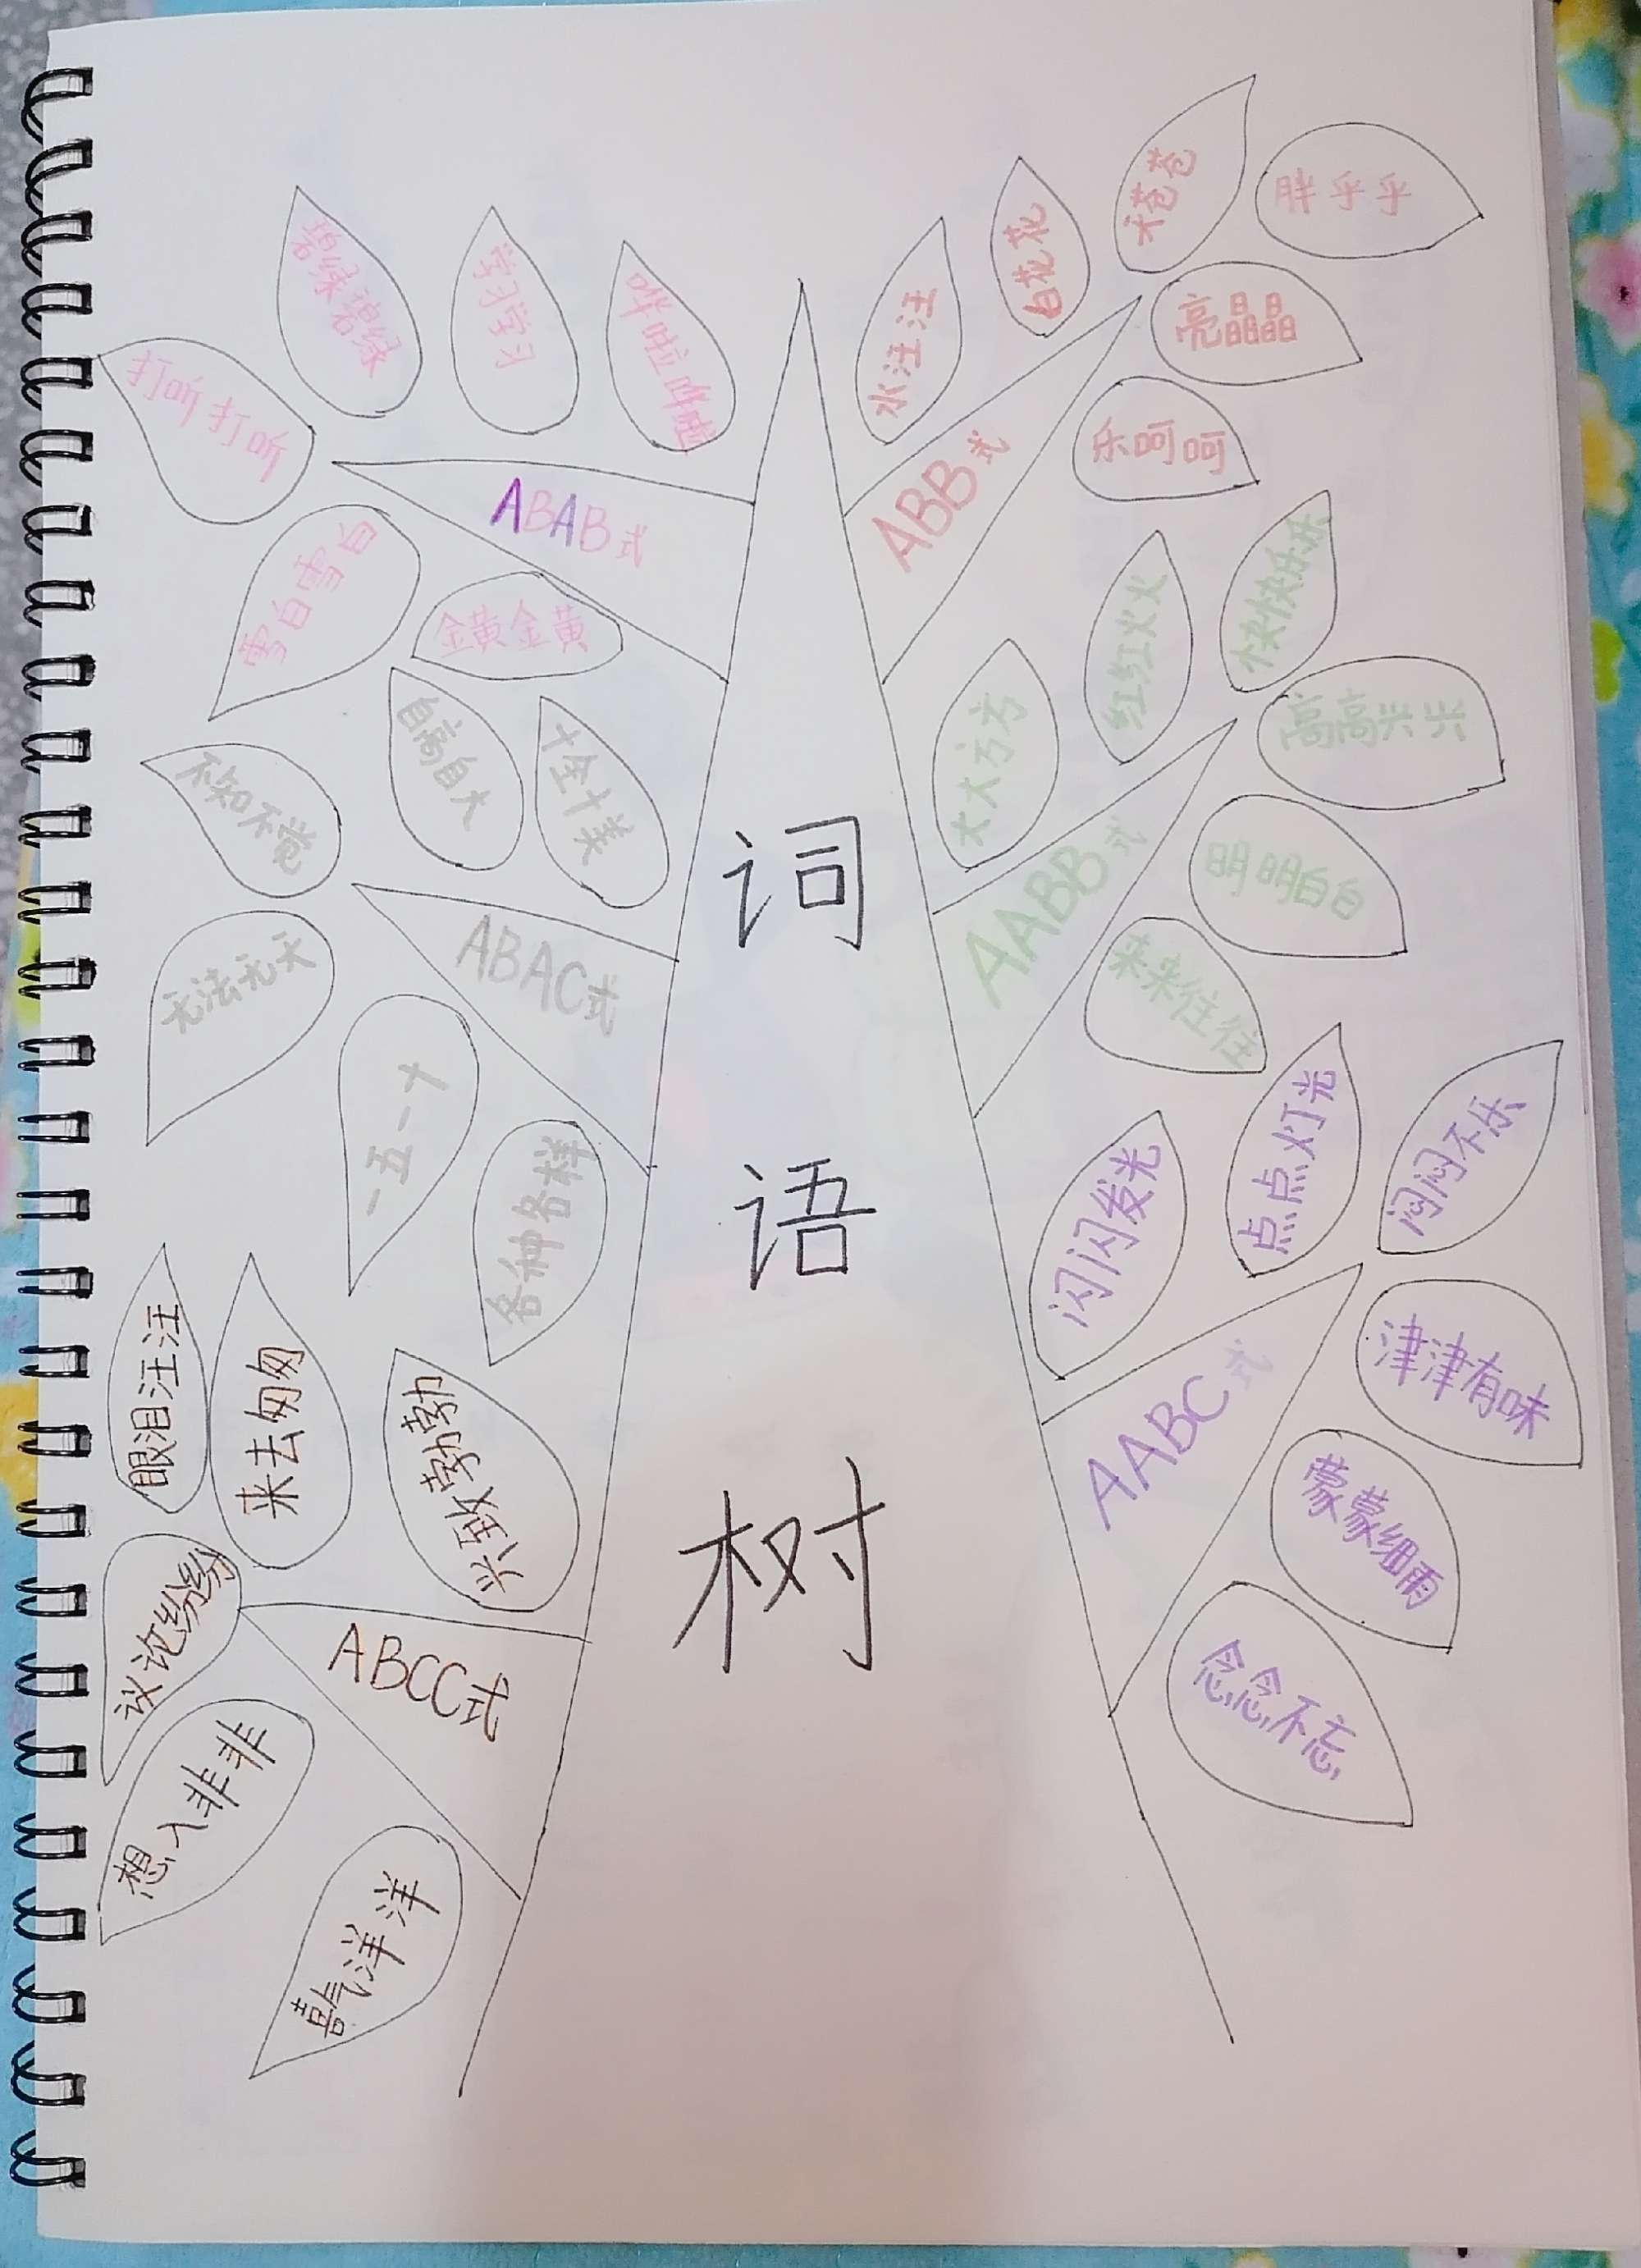 词
语
树
ABAB式
打听打听
碧绿碧绿
学习学习
哗啦哗啦
雪白雪白
金黄金黄
ABAC式
不知不觉
自高自大
十全十美
无法无天
一五一十
各种各样
ABCC式
眼泪汪汪
来去匆匆
兴致勃勃
议论纷纷
想入非非
喜气洋洋
ABB式
水汪汪
白花花
胖乎乎
亮晶晶
乐呵呵
AABB式
大大方方
红红火火
快快乐乐
高高兴兴
明明白白
来来往往
AABC式
闪闪发光
点点灯光
闷闷不乐
津津有味
蒙蒙细雨
念念不忘